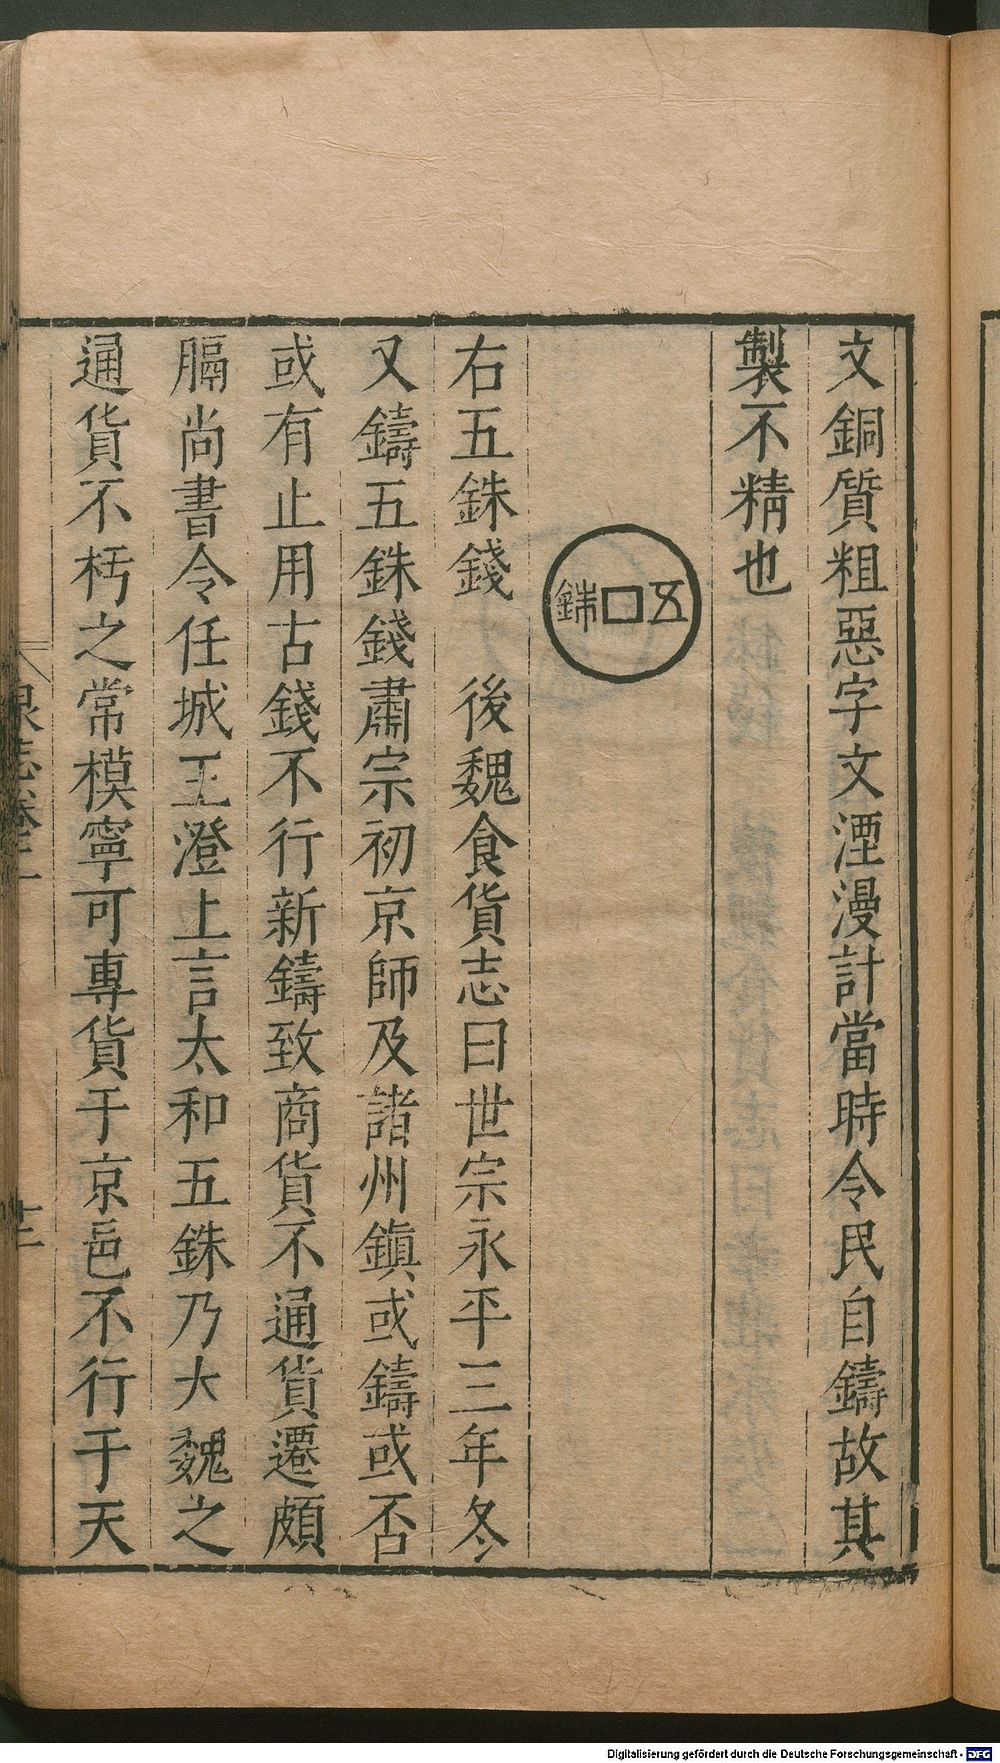 文銅質粗惡字文湮漫計當時令民自鑄故其
製不精也
五銖
右五銖錢　後魏食貨志曰世宗永平三年冬
又鑄五銖錢肅宗初京師及諸州鎮或鑄或否
或有止用古錢不行新鑄致商貨不通貨遷頗
膈尚書令任城王澄上言太和五銖乃大魏之
通貨不朽之常模寧可專貨于京邑不行于天
泉志卷
Digitalisierung gefördert durch die Deutsche Forschungsgemeinschaft - DFG